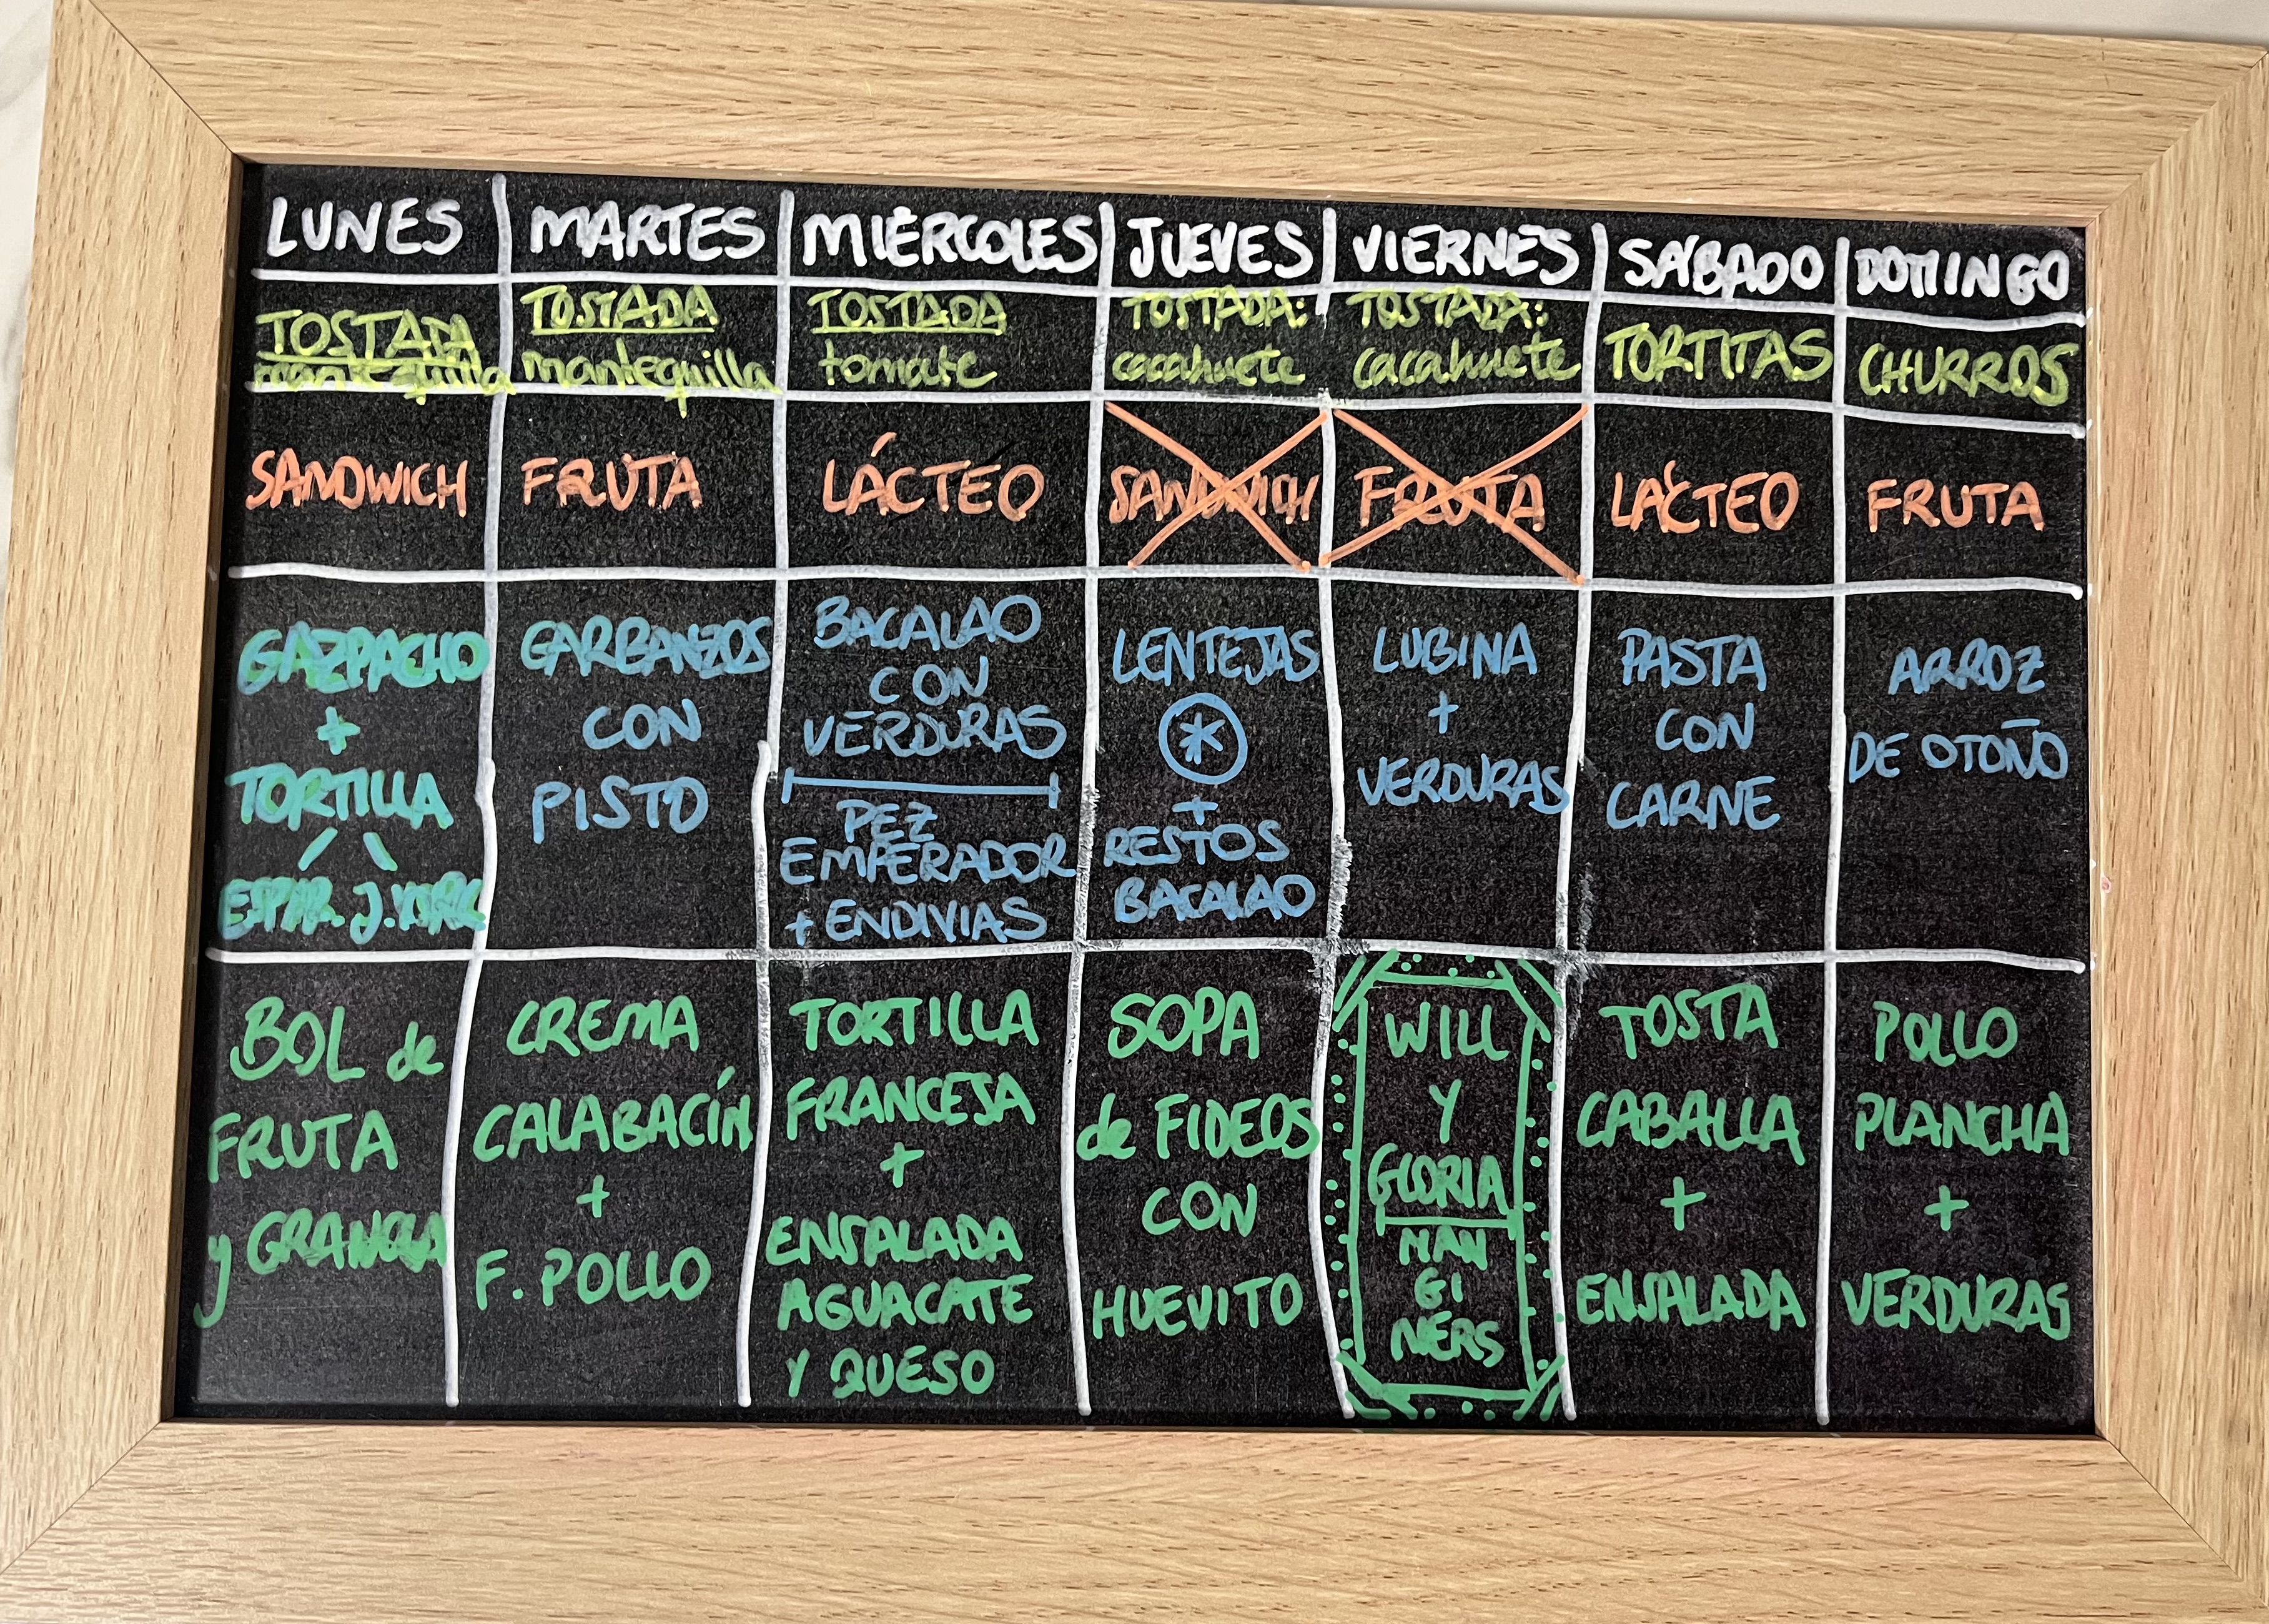 LUNES
MARTES
MIÉRCOLES
JUEVES
VIERNES
SÁBADO
DOMINGO
TOSTADA
mantequilla
TOSTADA
mantequilla
TOSTADA
tomate
TOSTADA:
cacahuete
TOSTADA:
cacahuete
TORTITAS
CHURROS
SANDWICH
FRUTA
LÁCTEO
SANDWICH
FRUTA
LÁCTEO
FRUTA
GAZPACHO
+
TORTILLA
ESPAR. J.YORK
GARBANZOS
CON
PISTO
BACALAO
CON
VERDURAS
PEZ
EMPERADOR
+ ENDIVIAS
LENTEJAS
*
+
RESTOS
BACALAO
LUBINA
+
VERDURAS
PASTA
CON
CARNE
ARROZ
DE OTOÑO
BOL de
FRUTA
y GRANOLA
CREMA
CALABACÍN
+
F. POLLO
TORTILLA
FRANCESA
+
ENSALADA
AGUACATE
Y QUESO
SOPA
de FIDEOS
CON
HUEVITO
WILL
Y
GLORIA
MAN
GI
NERS
TOSTA
CABALLA
+
ENSALADA
POLLO
PLANCHA
+
VERDURAS